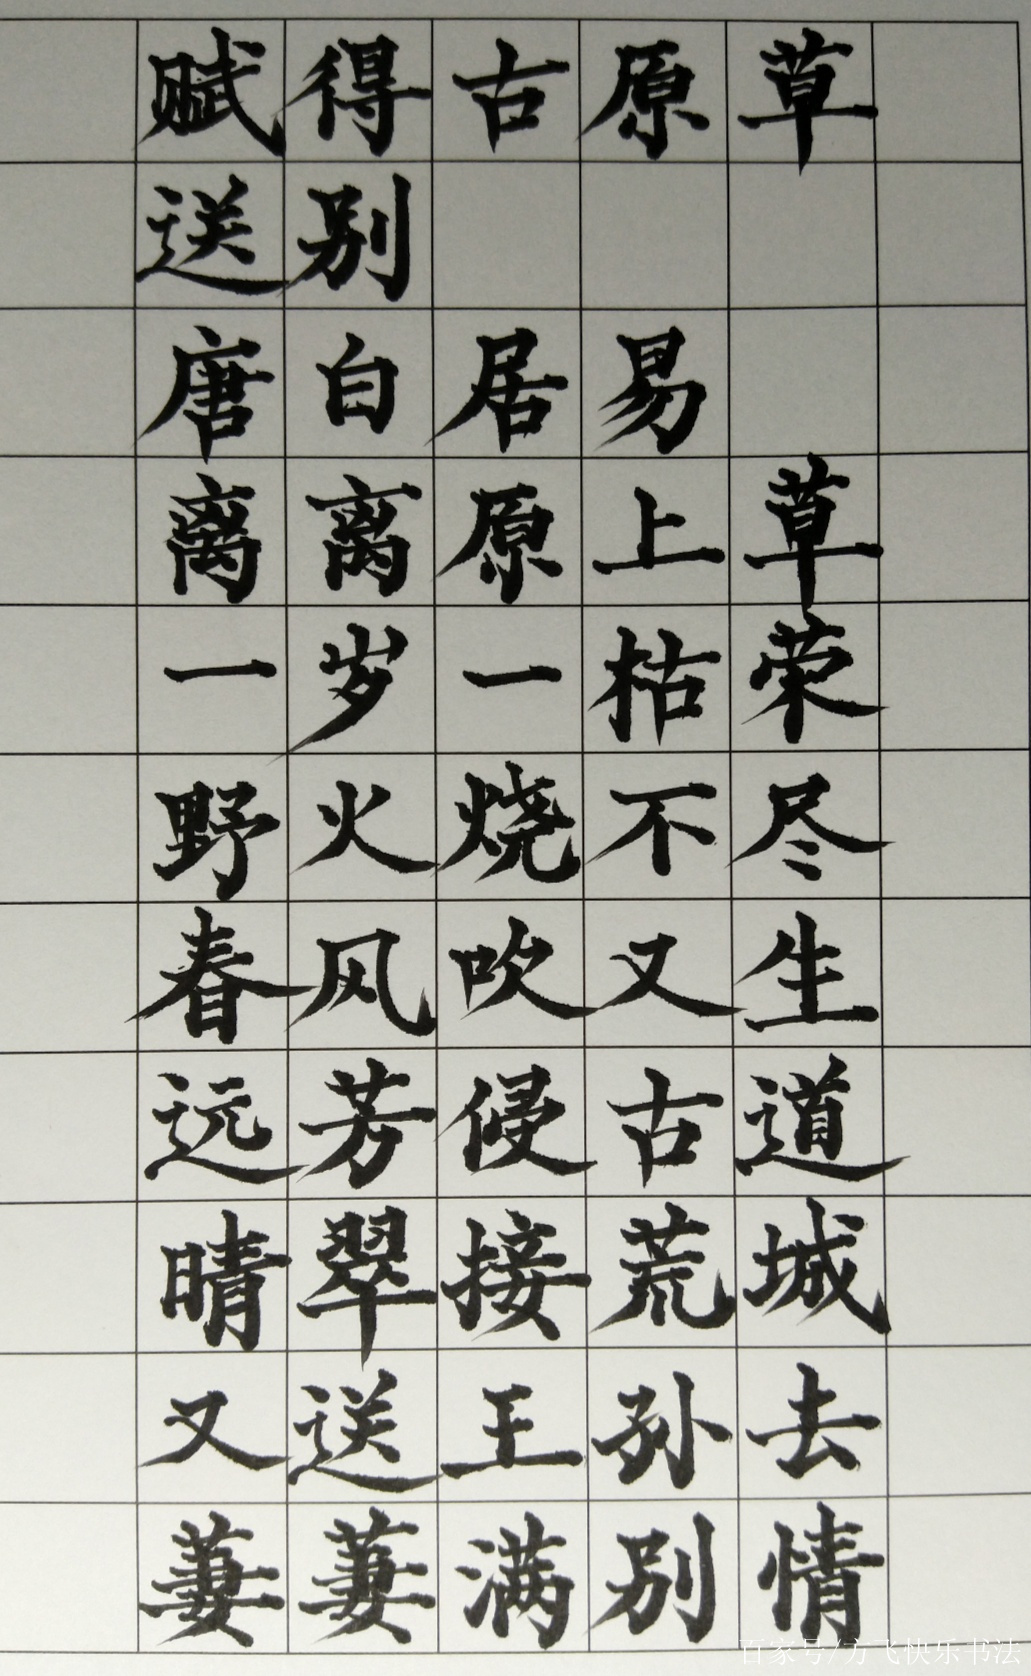 赋得古原草
送别
唐白居易
离离原上草
一岁一枯荣
野火烧不尽
春风吹又生
远芳侵古道
晴翠接荒城
又送王孙去
萋萋满别情
百家号/方飞快乐书法